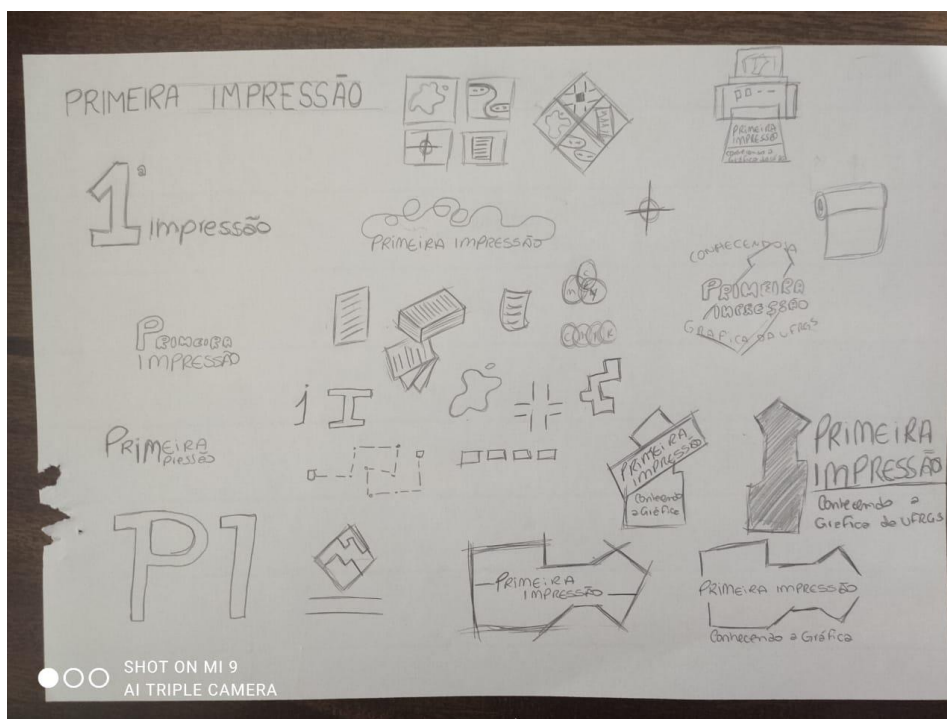 PRIMEIRA IMPRESSÃO
PRIMEIRA
IMPRESSÃO
Conhecendo a
Gráfica da UFRGS
1ª
Impressão
PRIMEIRA IMPRESSÃO
CONHECENDO A
PRIMEIRA
IMPRESSÃO
GRÁFICA DA UFRGS
C
M
Y
C M Y K
PRIMEIRA
IMPRESSÃO
1 I
PRIMEIRA
pressão
PRIMEIRA
IMPRESSÃO
Conhecendo
a Gráfica
PRIMEIRA
IMPRESSÃO
Conhecendo a
Gráfica da UFRGS
P1
PRIMEIRA
IMPRESSÃO
PRIMEIRA IMPRESSÃO
Conhecendo a Gráfica
SHOT ON MI 9
AI TRIPLE CAMERA